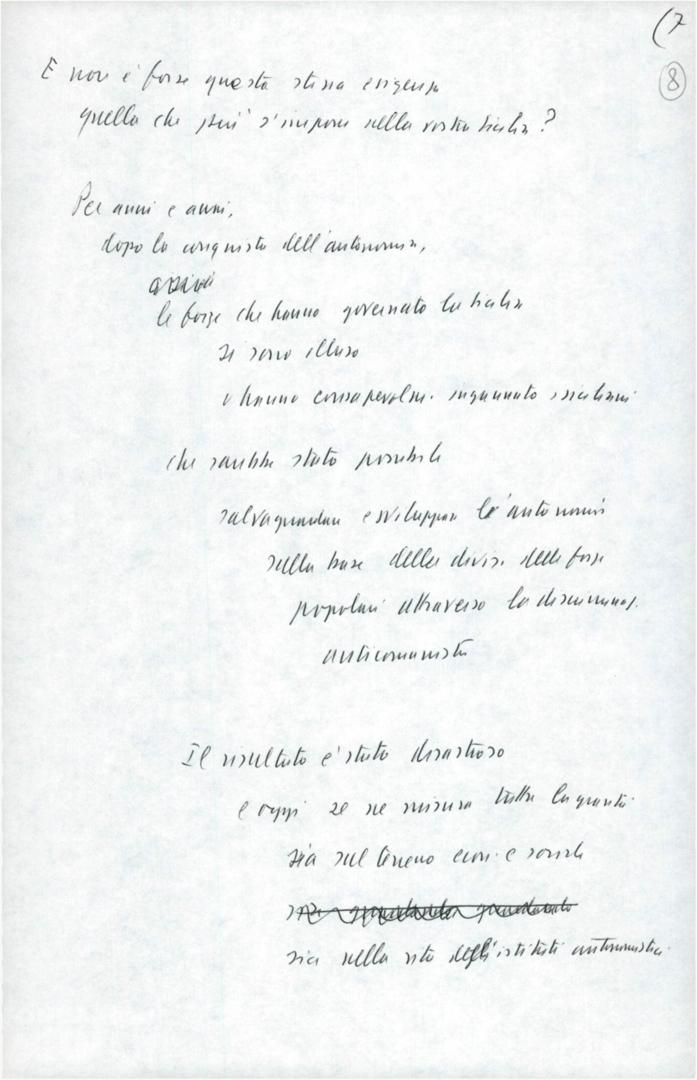 (7
8
E non è forse questa stessa esigenza
quella che più s'impone nella vostra Sicilia?
Per anni e anni,
dopo la conquista dell'autonomia,
le forze che hanno governato la Sicilia
si sono illuse
o hanno consapevolm. ingannato i siciliani
che sarebbe stato possibile
salvaguardare e sviluppare l'autonomia
sulla base della divis. delle forze
popolari attraverso la discriminaz.
anticomunista
Il risultato è stato disastroso
e oggi se ne misura tutta la gravità
sia sul terreno econ. e sociale
sia nella vita degli istituti autonomistici